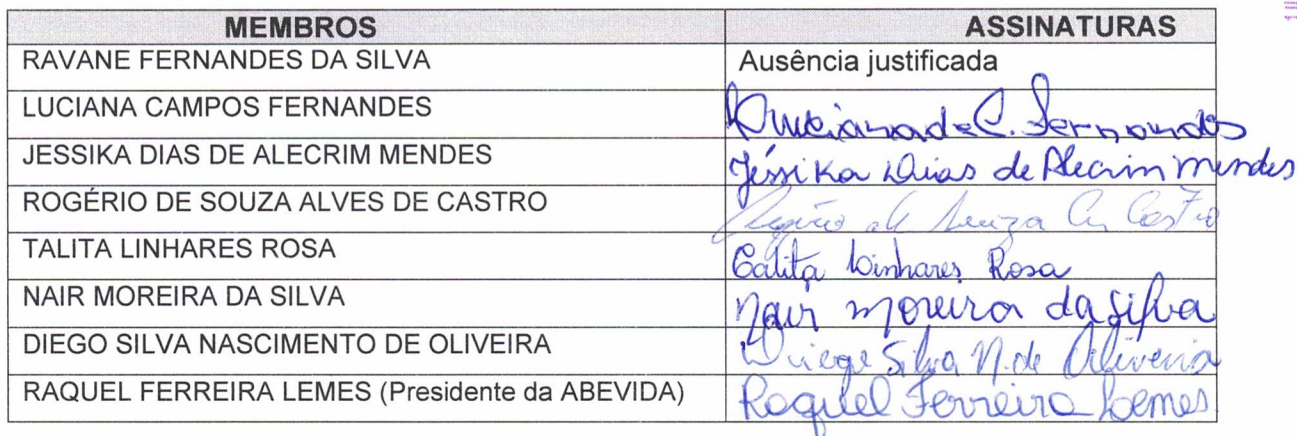 MEMBROS ASSINATURAS
RAVANE FERNANDES DA SILVA Ausência justificada
LUCIANA CAMPOS FERNANDES Luciana de C. Fernandes
JESSIKA DIAS DE ALECRIM MENDES Jéssika Dias de Alecrim Mendes
ROGÉRIO DE SOUZA ALVES DE CASTRO Rogério de Souza Castro
TALITA LINHARES ROSA Talita Linhares Rosa
NAIR MOREIRA DA SILVA Nair Moreira da Silva
DIEGO SILVA NASCIMENTO DE OLIVEIRA Diego Silva N. de Oliveira
RAQUEL FERREIRA LEMES (Presidente da ABEVIDA) Raquel Ferreira Lemes